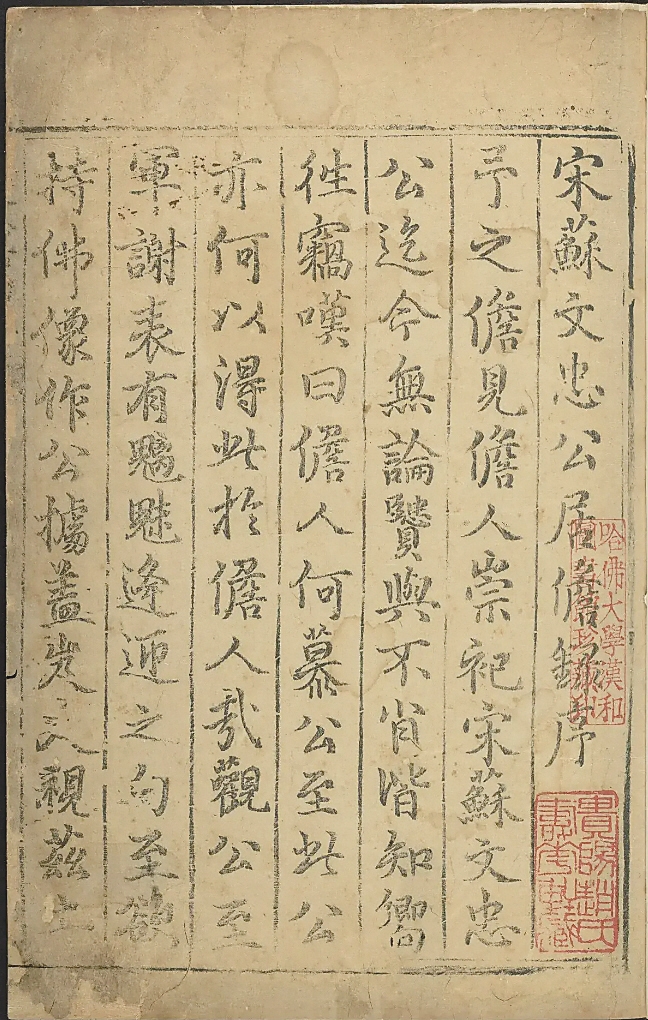 宋蘇文忠公居儋錄序
予之儋見儋人崇祀宋蘇文忠
公迄今無論賢與不肖皆知嚮
徃竊嘆曰儋人何慕公至此公
亦何以得此於儋人哉觀公至
軍謝表有魑魅逄迎之句至欲
持佛像作公據盖炎人視茲土
哈佛大學漢和
圖書館珍藏印
貴陽趙氏
壽華軒藏